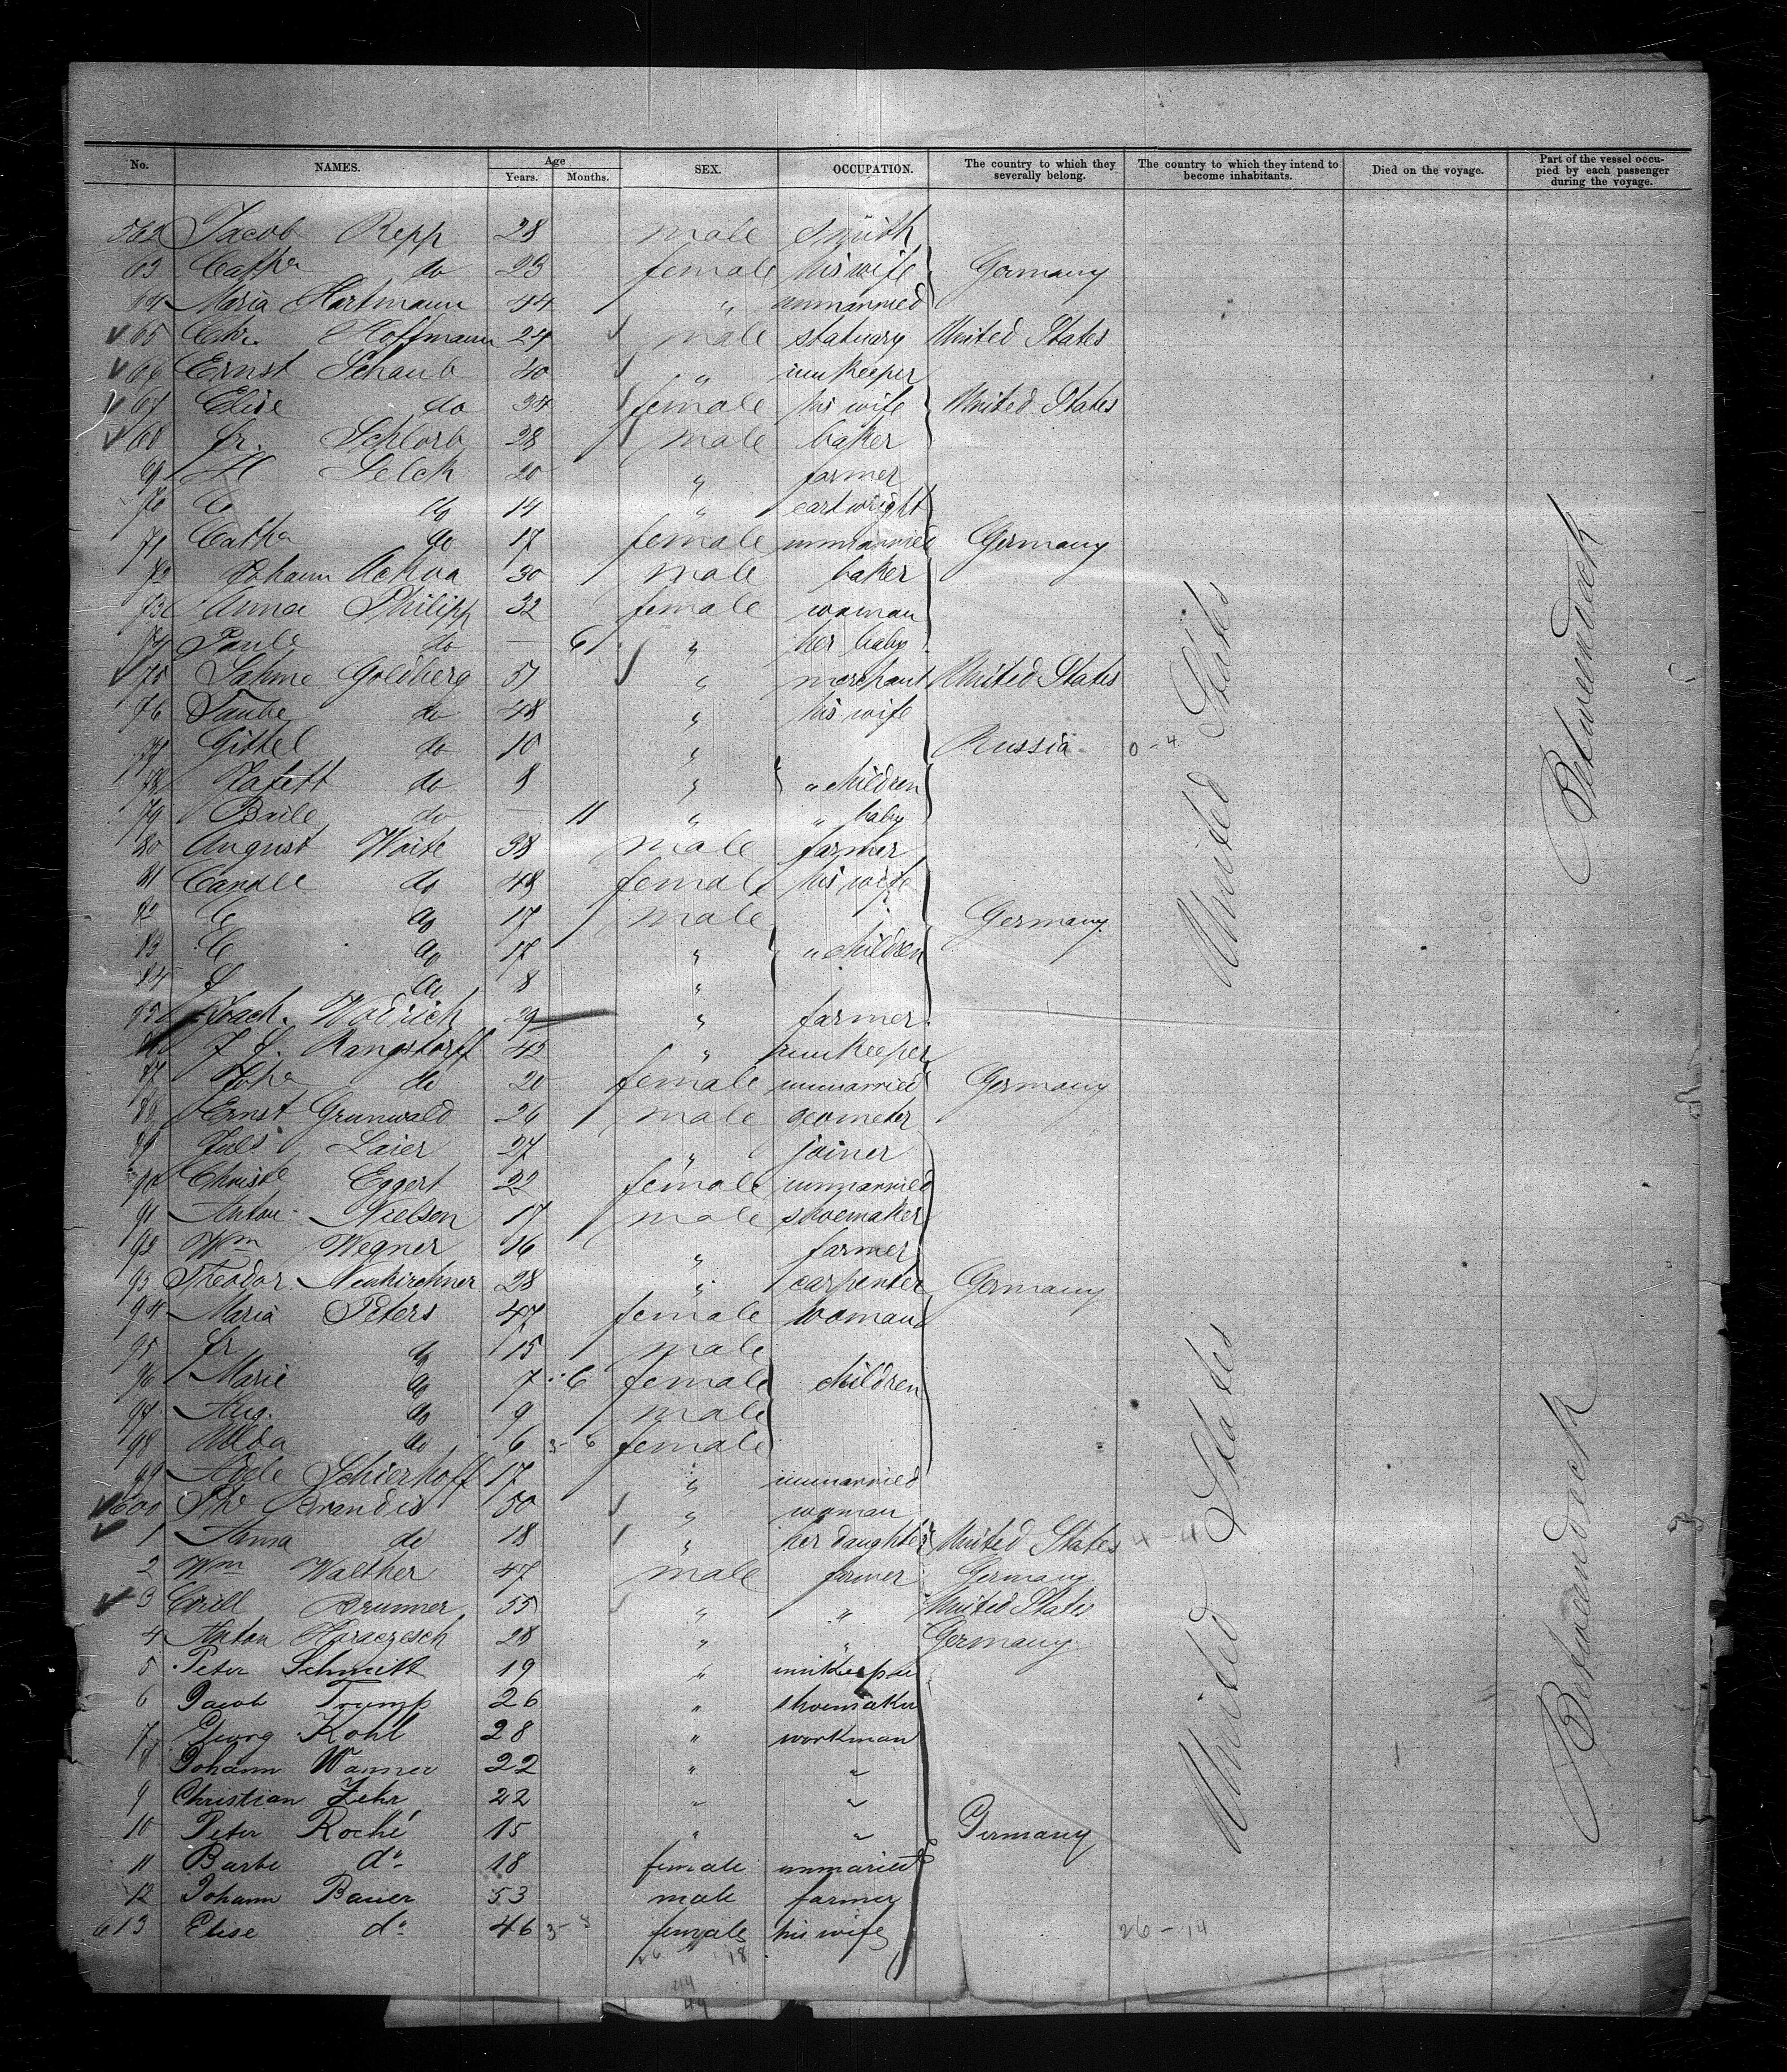 No. NAMES. Age Years. Months. SEX. OCCUPATION. The country to which they severally belong. The country to which they intend to become inhabitants. Died on the voyage. Part of the vessel occupied by each passenger during the voyage.
562 Jacob Repp 28 male smith
63 Catha do 23 female his wife Germany
64 Maria Hartmann 44 " unmarried
65 Chr. Hoffmann 24 male statuary United States
66 Ernst Schaub 40 " innkeeper
67 Elise do 34 female his wife United States
68 Fr. Schlorb 28 male baker
69 H Selck 20 " farmer
70 C do 14 " cartwright
71 Catha do 17 female unmarried Germany
72 Johann 30 male baker
73 Anna Philipp 32 female woman
74 Paula do — 6 " her baby
75 Goldberg 57 " merchant United States
76 Taube do 48 " his wife
77 Gittel do 10 " Russia 0-4
78 do 8 " " children
79 Baile do — 11 " " baby
80 August Woite 38 male farmer
81 do 48 female his wife
82 C do 17 male Germany.
83 C do 17 " " children
84 F do 8 "
85 Joach. Wodrich 29 " farmer
86 J F. Rangstorff 42 " innkeeper
87 Joha do 20 female unmarried Germany
88 Ernst Grunwald 26 male geometer
89 Juls Laier 27 " joiner
90 Christe Eggert 22 female unmarried
91 Anton Nielsen 17 male shoemaker
92 Wm Wegner 16 " farmer
93 Theodor Neukirchner 28 " carpenter Germany
94 Maria Peters 47 female woman
95 Fr do 15 male
96 Marie do 7 6 female children
97 Aug. do 9 male
98 Allda do 6 3-6 female
99 Adele Schierhoff 17 " unmarried
600 Brandis 50 " woman
1 Anna do 18 " her daughter United States 4-4
2 Wm Walther 47 male farmer Germany
3 Cirill Brunner 55 " " United States
4 Anton Horaczesch 28 " " Germany
5 Peter Schmitt 19 " innkeeper
6 Jacob Trump 26 " shoemaker
7 Georg Kohl 28 " workman
8 Johann Wanner 22 " "
9 Christian Zehr 22 " "
10 Peter Roché 15 " " Germany
11 Barbe do 18 female unmaried
12 Johann Bauer 53 male farmer
613 Elise do 46 3-8 female his wife 26-14
26 18
44
44
United States
Betweendeck
United States
Betweendeck